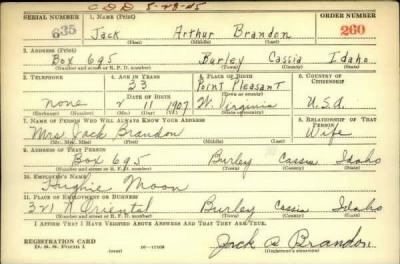 C D D 5-23-45
SERIAL NUMBER 1. NAME (Print) ORDER NUMBER
635 Jack Arthur Brandon 260
(First) (Middle) (Last)
2. ADDRESS (Print)
Box 695 Burley Cassia Idaho
(Number and street or R. F. D. number) (Town) (County) (State)
3. TELEPHONE 4. AGE IN YEARS 5. PLACE OF BIRTH 6. COUNTRY OF CITIZENSHIP
33 Point Pleasant
DATE OF BIRTH (Town or county)
none 2 11 1907 W. Virginia U.S.A.
(Exchange) (Number) (Mo.) (Day) (Yr.) (State or country)
7. NAME OF PERSON WHO WILL ALWAYS KNOW YOUR ADDRESS 8. RELATIONSHIP OF THAT PERSON
Mrs. Jack Brandon Wife
(Mr., Mrs., Miss) (First) (Middle) (Last)
9. ADDRESS OF THAT PERSON
Box 695 Burley Cassia Idaho
(Number and street or R. F. D. number) (Town) (County) (State)
10. EMPLOYER'S NAME
Hughie Moon
11. PLACE OF EMPLOYMENT OR BUSINESS
321 N Oriental Burley Cassia Idaho
(Number and street or R. F. D. number) (Town) (County) (State)
I AFFIRM THAT I HAVE VERIFIED ABOVE ANSWERS AND THAT THEY ARE TRUE.
REGISTRATION CARD
D. S. S. Form 1
Jack A Brandon
(Registrant's signature)